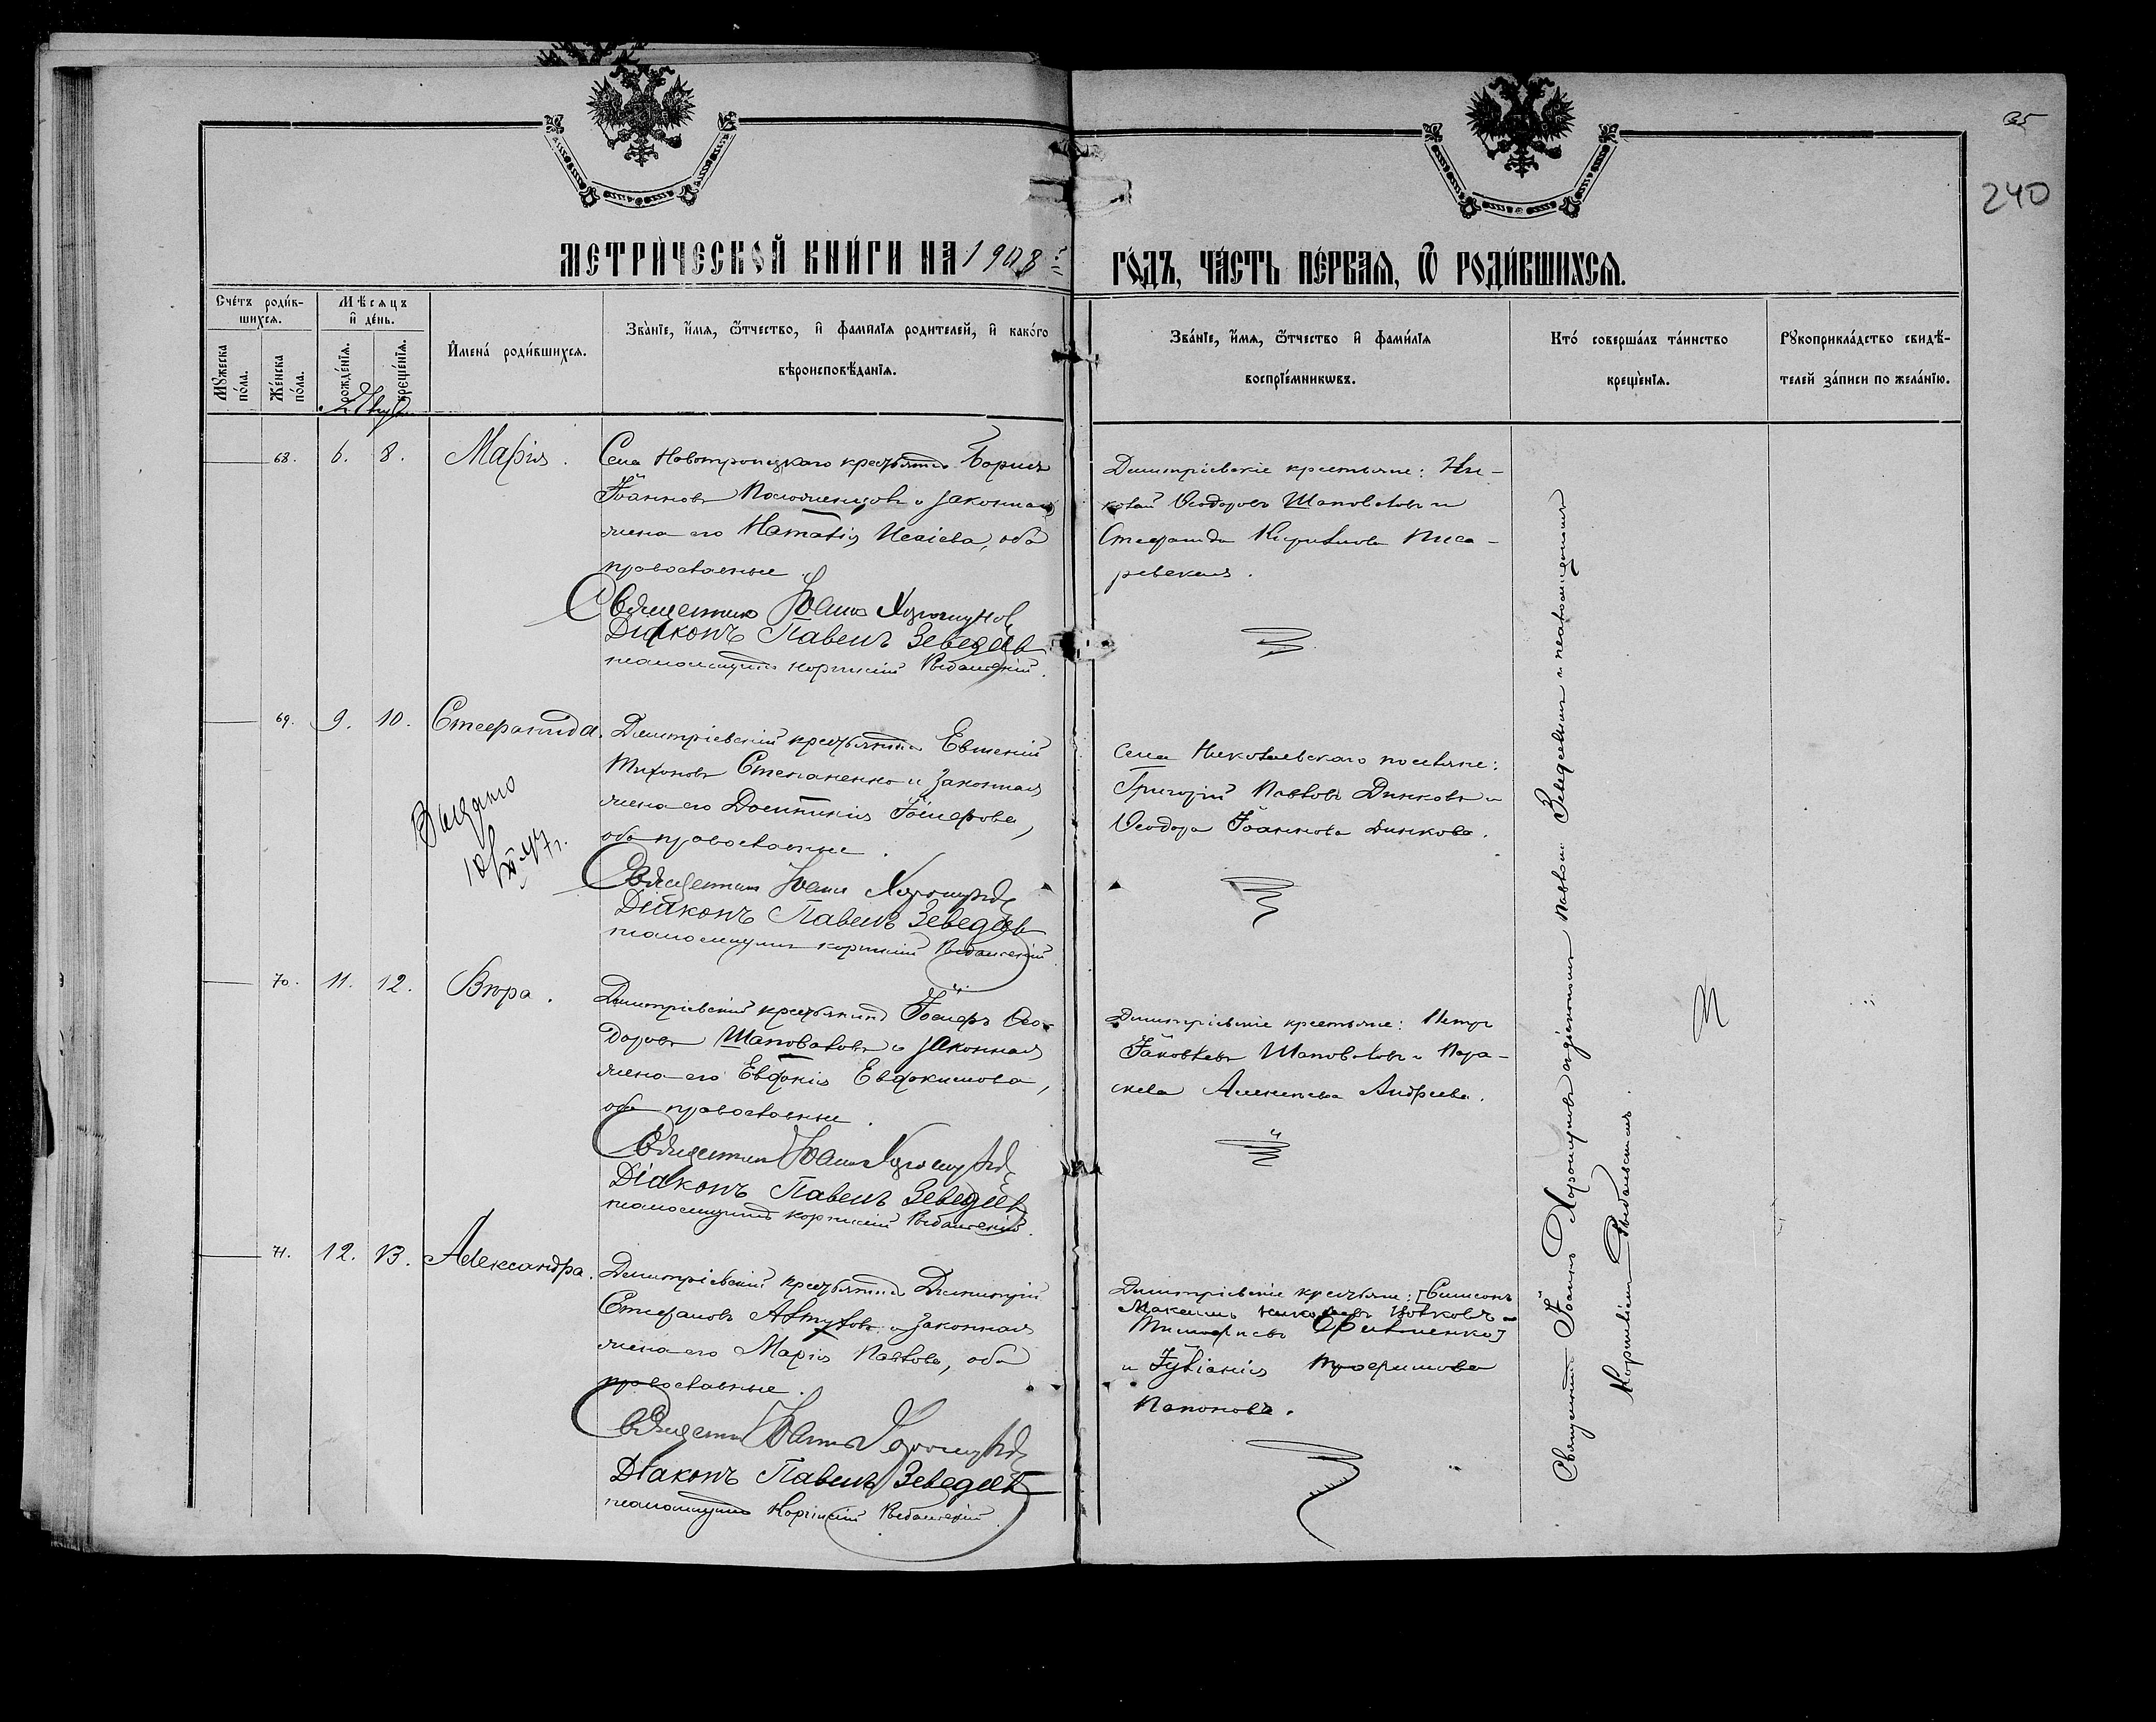 35
240
МЕТРИЧЕСКОЙ КНИГИ НА 1908 г. ГОДЪ, ЧАСТЬ ПЕРВАЯ, Ѿ РОДИВШИХСЯ.
Счетъ родив-
шихся.
Мѣсяцъ
и день.
Мужеска
пола.
Женска
пола.
рожденія.
крещенія.
Имена родившихся.
Званіе, имя, ѿтчество, и фамилія родителей, и какого
вѣроисповѣданія.
Званіе, имя, ѿтчество и фамилія
воспріемникѡвъ.
Кто совершалъ таинство
крещенія.
Рукоприкладство свидѣ-
телей записи по желанію.
68. 6. 8. Марія.
Села Новотроицкаго крестьянинъ Борисъ
Іоанновъ и законная
жена его Наталія Исаіева, оба
православные.
Священникъ Іоаннъ Хорошуновъ
Діаконъ Павелъ Зеведеевъ
псаломщикъ Корнилій Рыбальскій.
Димитріевскіе крестьяне: Ни-
колай Ѳеодоровъ Шаповаловъ и
Стефанида Кириллова Писа-
ревская.
69. 9. 10. Стефанида.
Димитріевскій крестьянинъ Евгеній
Тихоновъ Степаненко и законная
жена его Домникія Іосифова,
оба православные.
Священникъ Іоаннъ Хорошуновъ
Діаконъ Павелъ Зеведеевъ
псаломщикъ Корнилій Рыбальскій
Выдано
47 г.
Села Николаевскаго поселяне:
Григорій Павловъ Динковъ и
Ѳеодора Іоаннова Динкова.
70. 11. 12. Вѣра.
Димитріевскій крестьянинъ Іосифъ Ѳео-
доровъ Шаповаловъ и законная
жена его Евфимія Евдокимова,
оба православные.
Священникъ Іоаннъ Хорошуновъ
Діаконъ Павелъ Зеведеевъ
псаломщикъ Корнилій Рыбальскій.
Димитріевскіе крестьяне: Петръ
Іаковлевъ Шаповаловъ и Пара-
скева Алексѣева Андреева.
71. 12. 13. Александра.
Димитріевскій крестьянинъ Димитрій
Стефановъ Алтуховъ и законная
жена его Марія Павлова, оба
православные.
Священникъ Іоаннъ Хорошуновъ
Діаконъ Павелъ Зеведеевъ
псаломщикъ Корнилій Рыбальскій
Димитріевскіе крестьяне: [Симеонъ
Максимъ Николаевъ Волковъ
Тимофеевъ
и Іуліанія Трофимова
Папонова.
Священникъ Іоаннъ Хорошуновъ съ діакономъ Павломъ Зеведеевымъ и псаломщикомъ
Корниліемъ Рыбальскимъ.